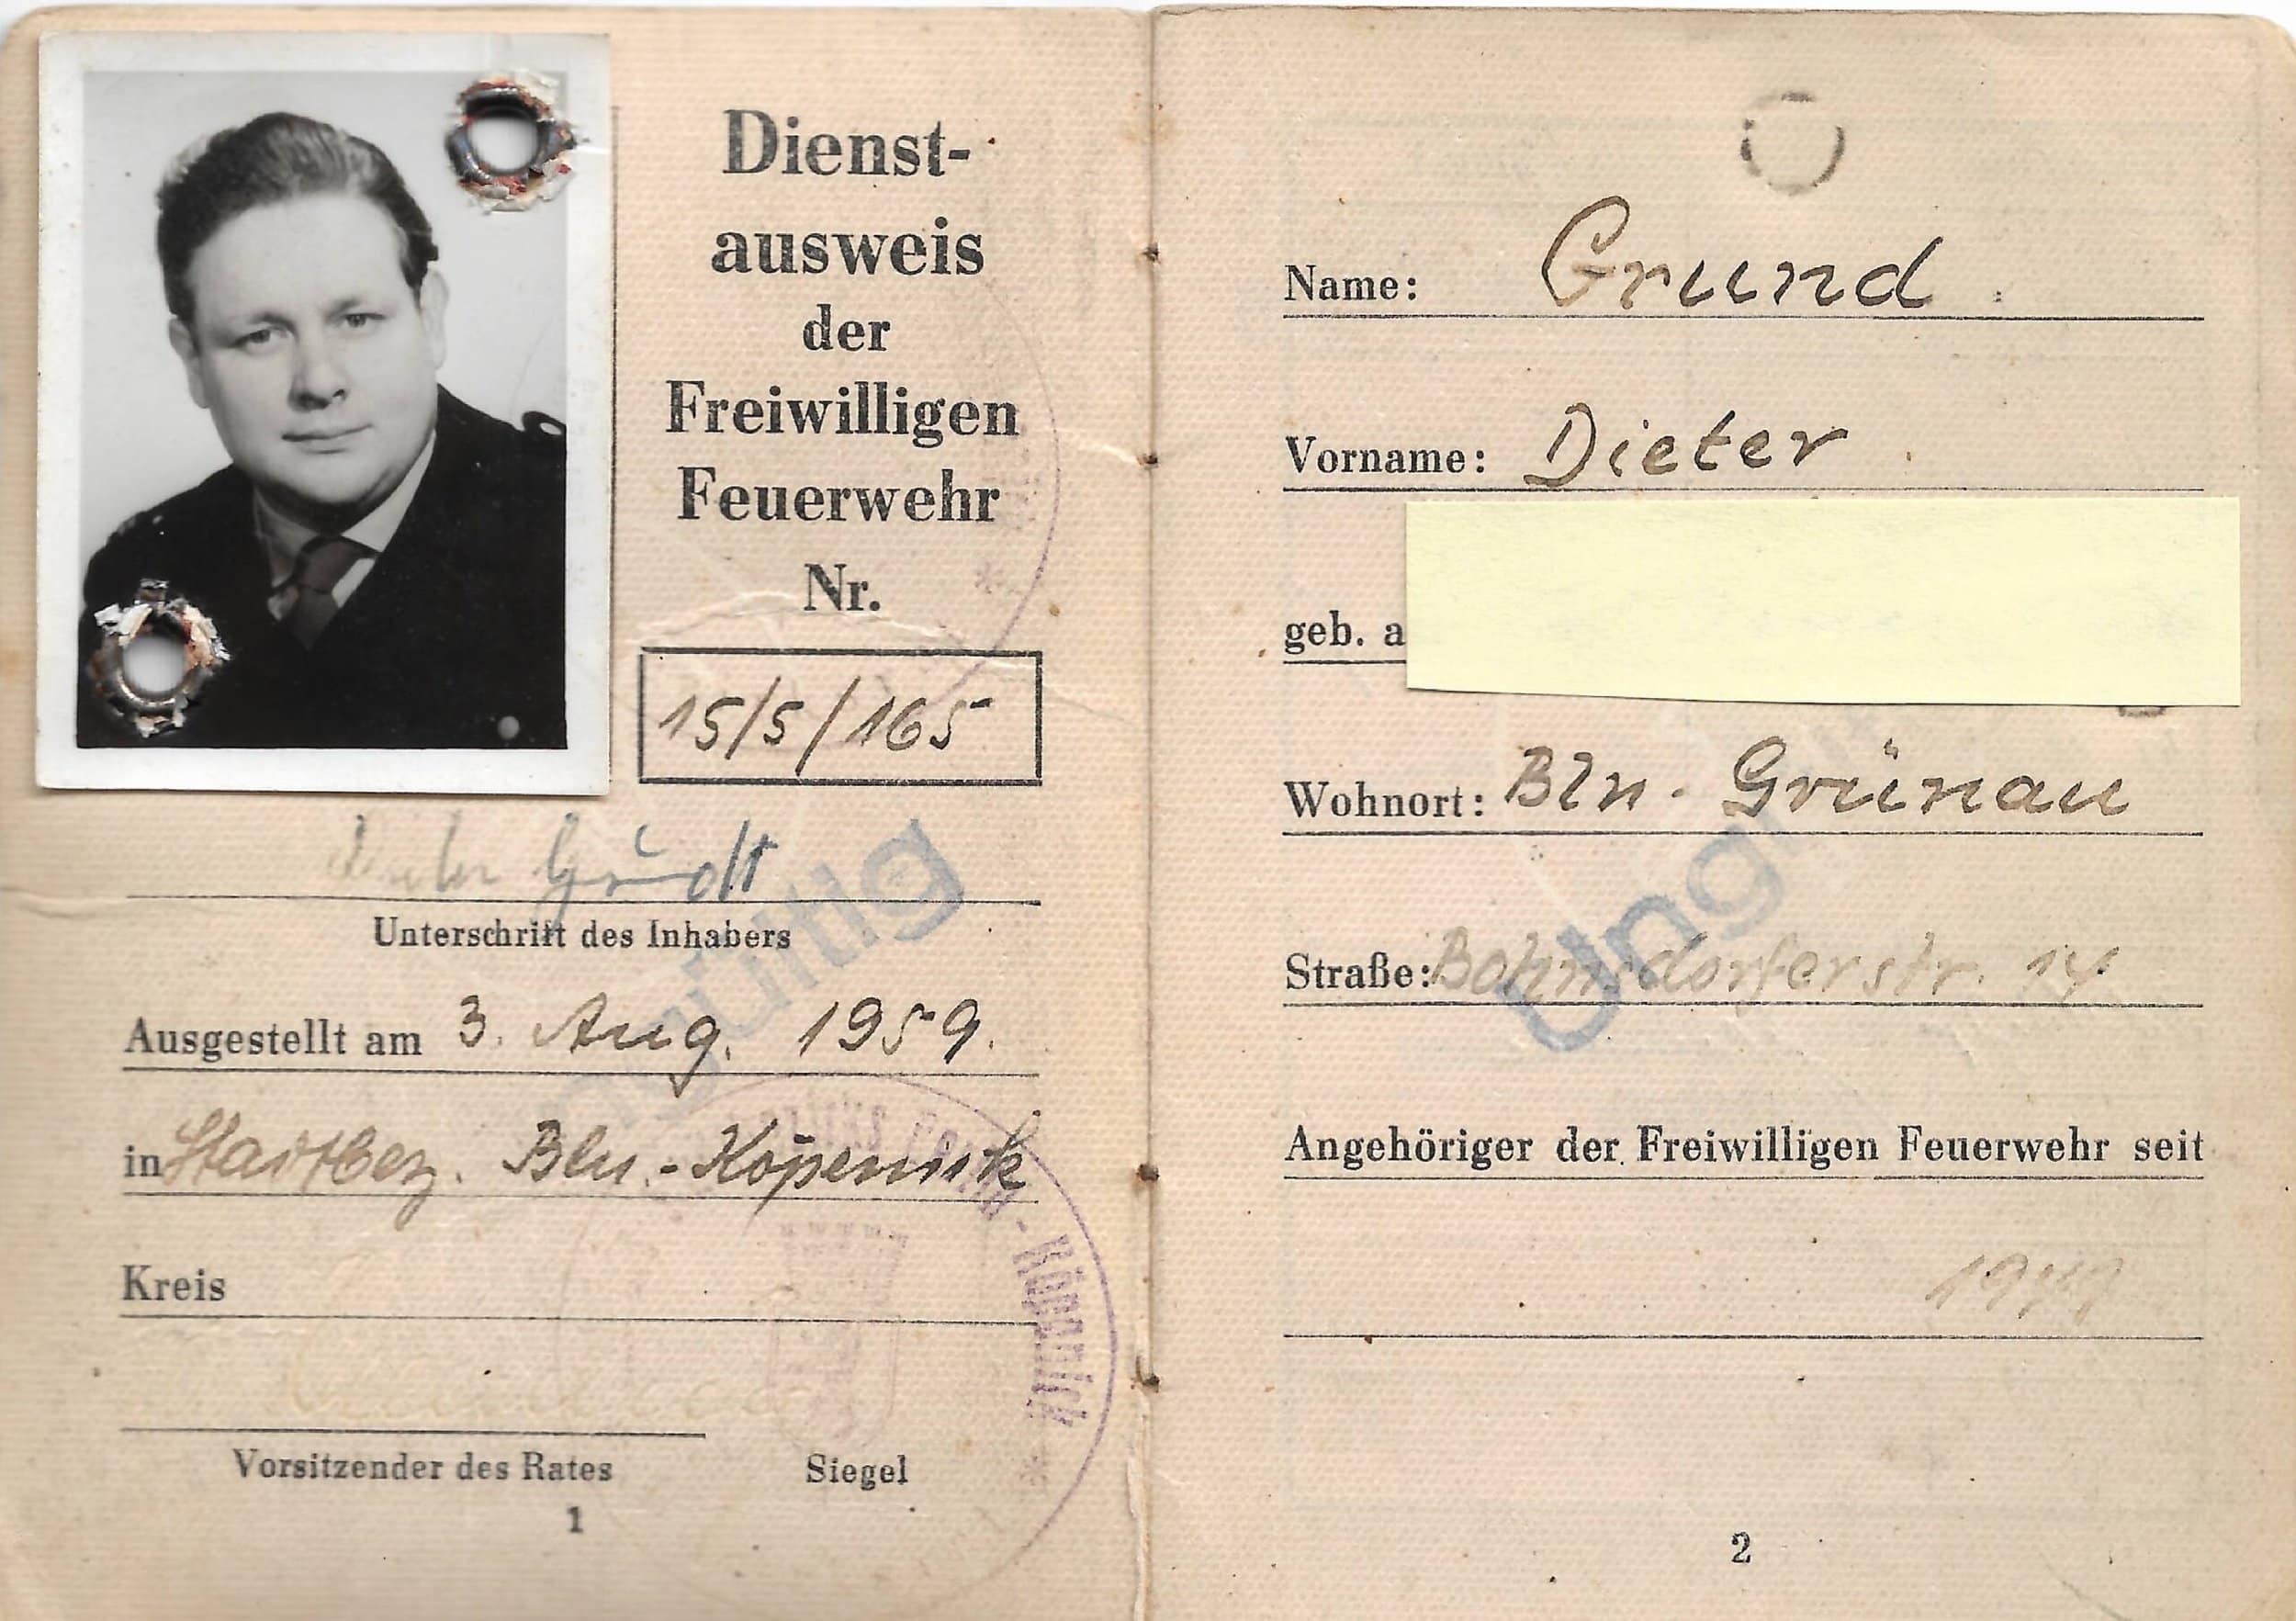 Dienst-
ausweis
der
Freiwilligen
Feuerwehr
Nr.
15/5/165
Unterschrift des Inhabers
ungültig
Ausgestellt am 3. Aug. 1959.
in Stadtbez. Bln.-Köpenick
Kreis
Vorsitzender des Rates
Siegel
Berlin-Köpenick *
1
Name: Grund
Vorname: Dieter
geb. a
Wohnort: Bln.-Grünau
Straße: Bohnsdorferstr. 14
Ung
Angehöriger der Freiwilligen Feuerwehr seit
2